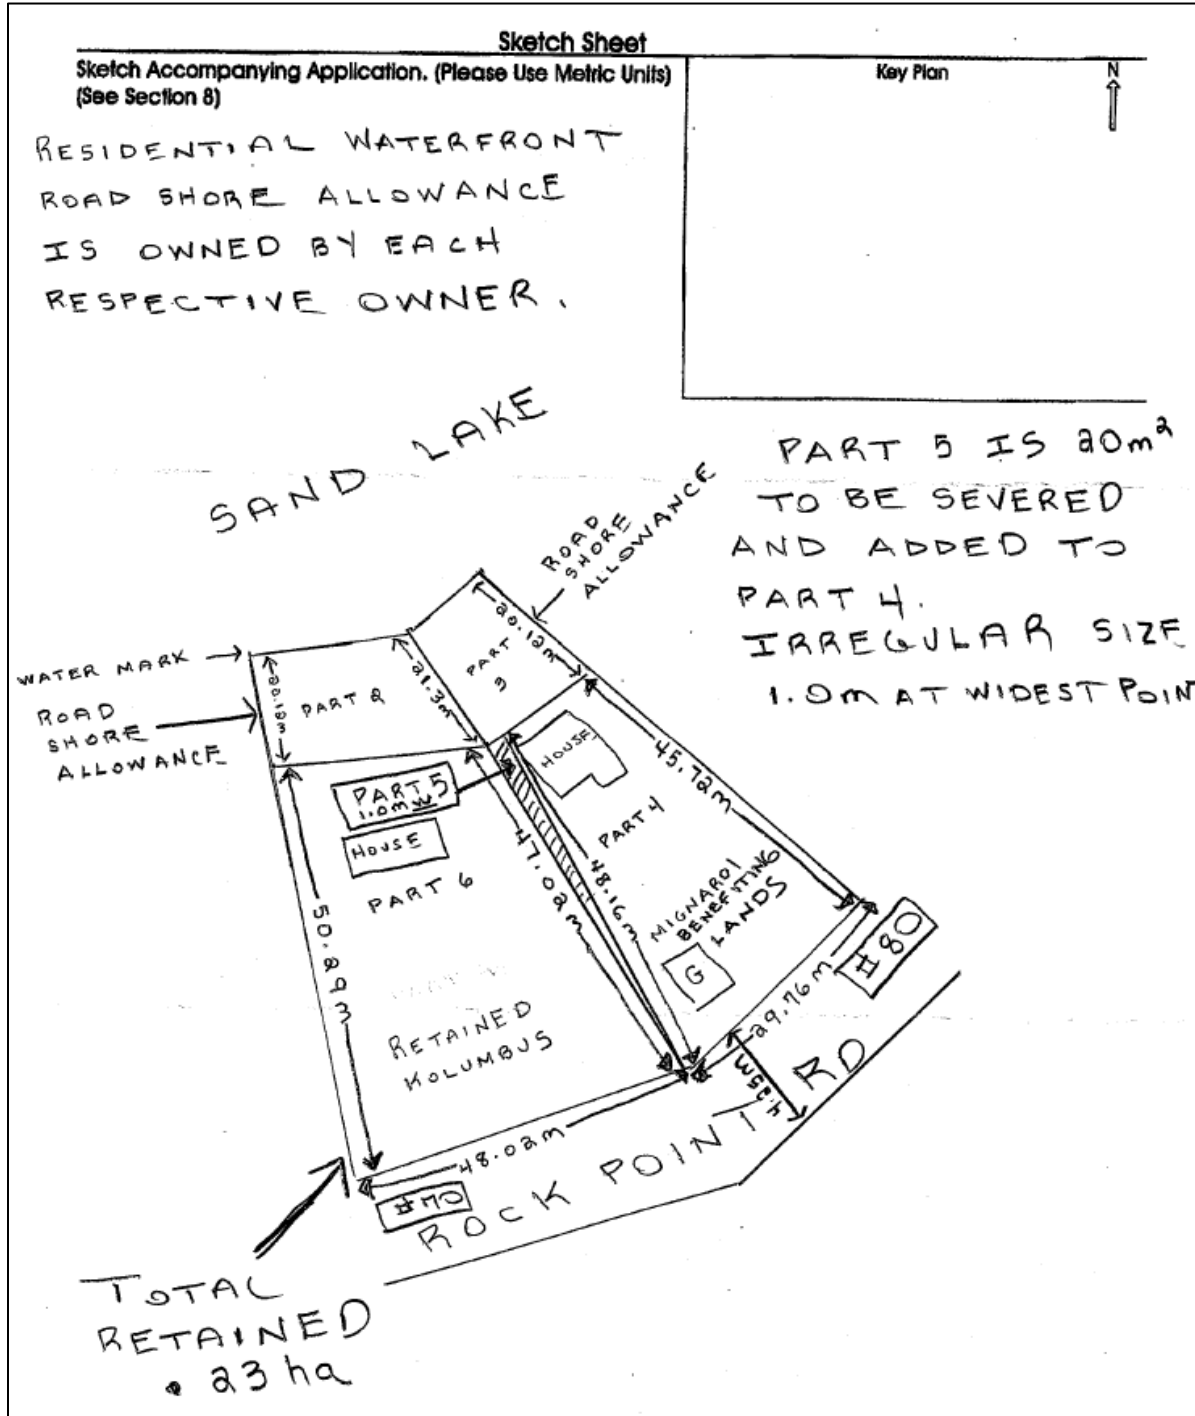 Sketch Sheet
Sketch Accompanying Application. (Please Use Metric Units)
(See Section 8)
Key Plan
N
RESIDENTIAL WATERFRONT
ROAD SHORE ALLOWANCE
IS OWNED BY EACH
RESPECTIVE OWNER.
SAND LAKE
PART 5 IS 20m²
TO BE SEVERED
AND ADDED TO
PART 4.
IRREGULAR SIZE
1.0m AT WIDEST POINT
ROAD
SHORE
ALLOWANCE
WATER MARK
ROAD
SHORE
ALLOWANCE
20.12m
PART 2
21.3m
20.12m
PART
3
HOUSE
45.72m
PART 5
1.0m W
HOUSE
PART 6
50.29m
47.02m
48.16m
PART 4
MIGNAROI
BENEFITING
LANDS
G
#80
29.76m
4.25m
RETAINED
KOLUMBUS
48.02m
#70
ROCK POINT RD
TOTAL
RETAINED
.23 ha